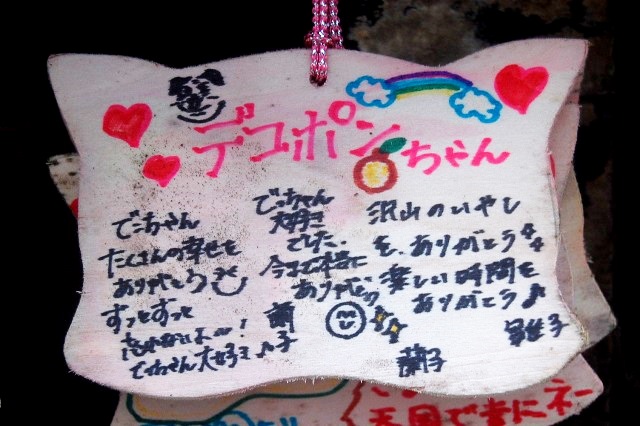 デコポンちゃん
でこちゃん
たくさんの幸せを
ありがとう
ずっとずっと
忘れないよー!
でこちゃん大好き♪
蘭子
でっちゃん
大好き
でした。
今まで本当に
ありがとう
沢山のいやし
を、ありがとう
楽しい時間を
ありがとう♪
子
天国で幸にネー